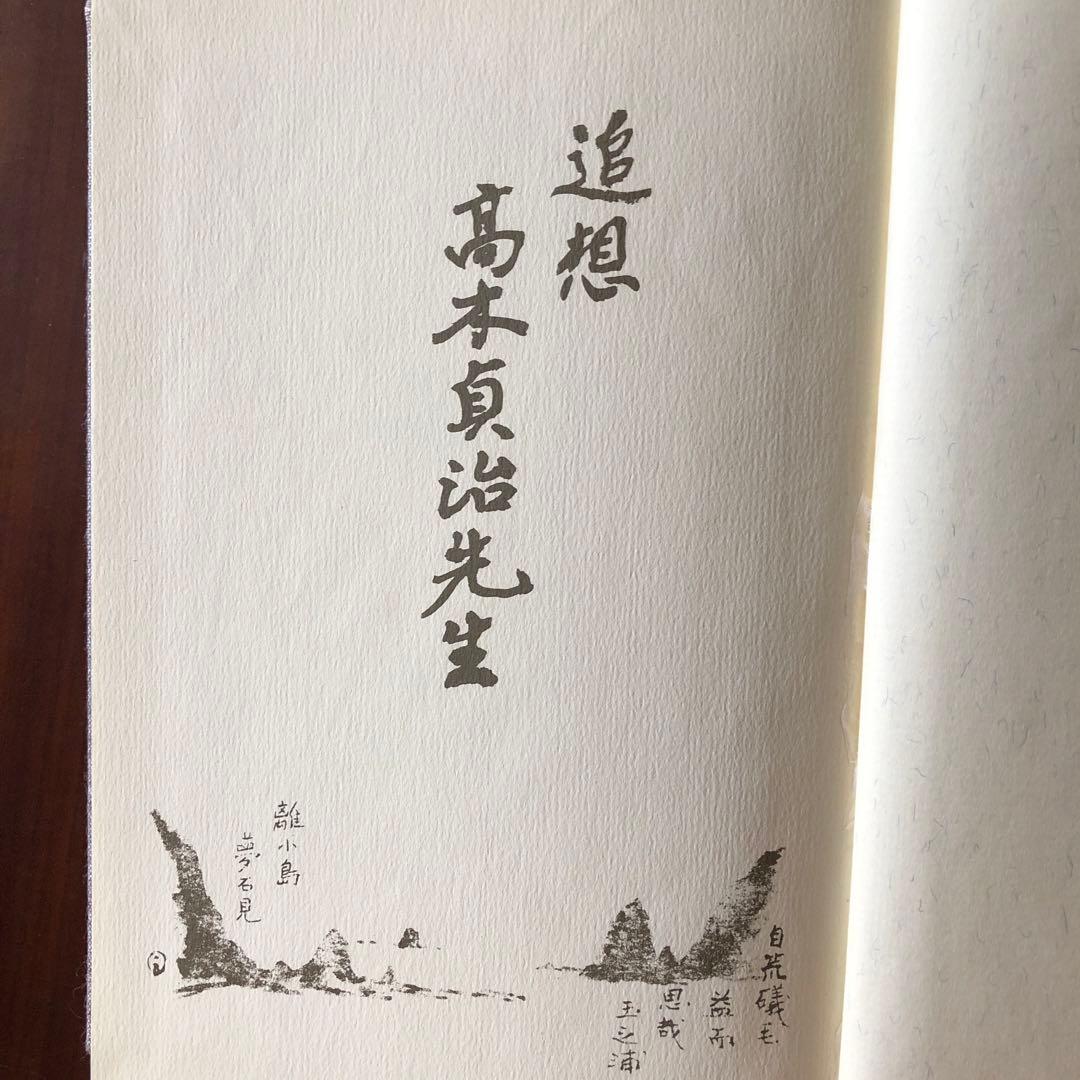 追想
高木貞治先生
自荒礒毛
益而
思哉
玉之浦
離小島
夢石見